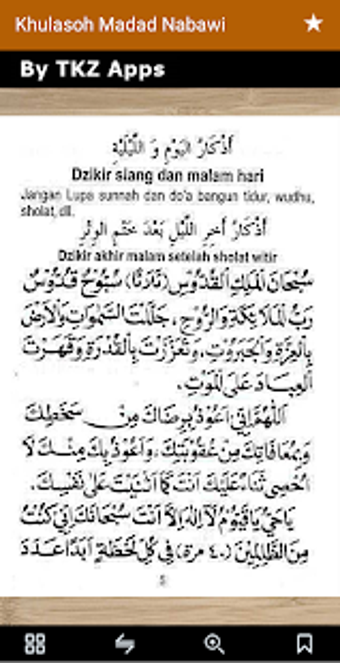 Khulasoh Madad Nabawi
By TKZ Apps
أَذْكَارُ الْيَوْمِ وَ اللَّيْلَةِ
Dzikir siang dan malam hari
Jangan Lupa sunnah dan do'a bangun tidur, wudhu,
sholat, dll.
أَذْكَارُ أَخِرِ اللَّيْلِ بَعْدَ خَتْمِ الْوِتْرِ
Dzikir akhir malam setelah sholat witir
سُبْحَانَ الْمَلِكِ الْقُدُّوْسِ (ثَلَاثًا) سُبُّوْحٌ قُدُّوْسٌ
رَبُّ الْمَلَائِكَةِ وَالرُّوْحِ، جَلَّلْتَ السَّمٰوَاتِ وَالْاَرْضَ
بِالْعِزَّةِ وَالْجَبَرُوْتِ، وَتَعَزَّزْتَ بِالْقُدْرَةِ وَقَهَرْتَ
الْعِبَادَ عَلَى الْمَوْتِ.
اَللّٰهُمَّ اِنِّي اَعُوْذُ بِرِضَاكَ مِنْ سَخَطِكَ
وَبِمُعَافَاتِكَ مِنْ عُقُوْبَتِكَ، وَاَعُوْذُ بِكَ مِنْكَ لَا
اُحْصِى ثَنَاءً عَلَيْكَ اَنْتَ كَمَا اَثْنَيْتَ عَلَى نَفْسِكَ.
يَاحَيُّ يَا قَيُّوْمُ لَا اِلٰهَ اِلَّا اَنْتَ سُبْحَانَكَ اِنِّي كُنْتُ
مِنَ الظَّالِمِيْنَ (٤٠ مرة) فِي كُلِّ لَحْظَةٍ اَبَدًا عَدَدَ